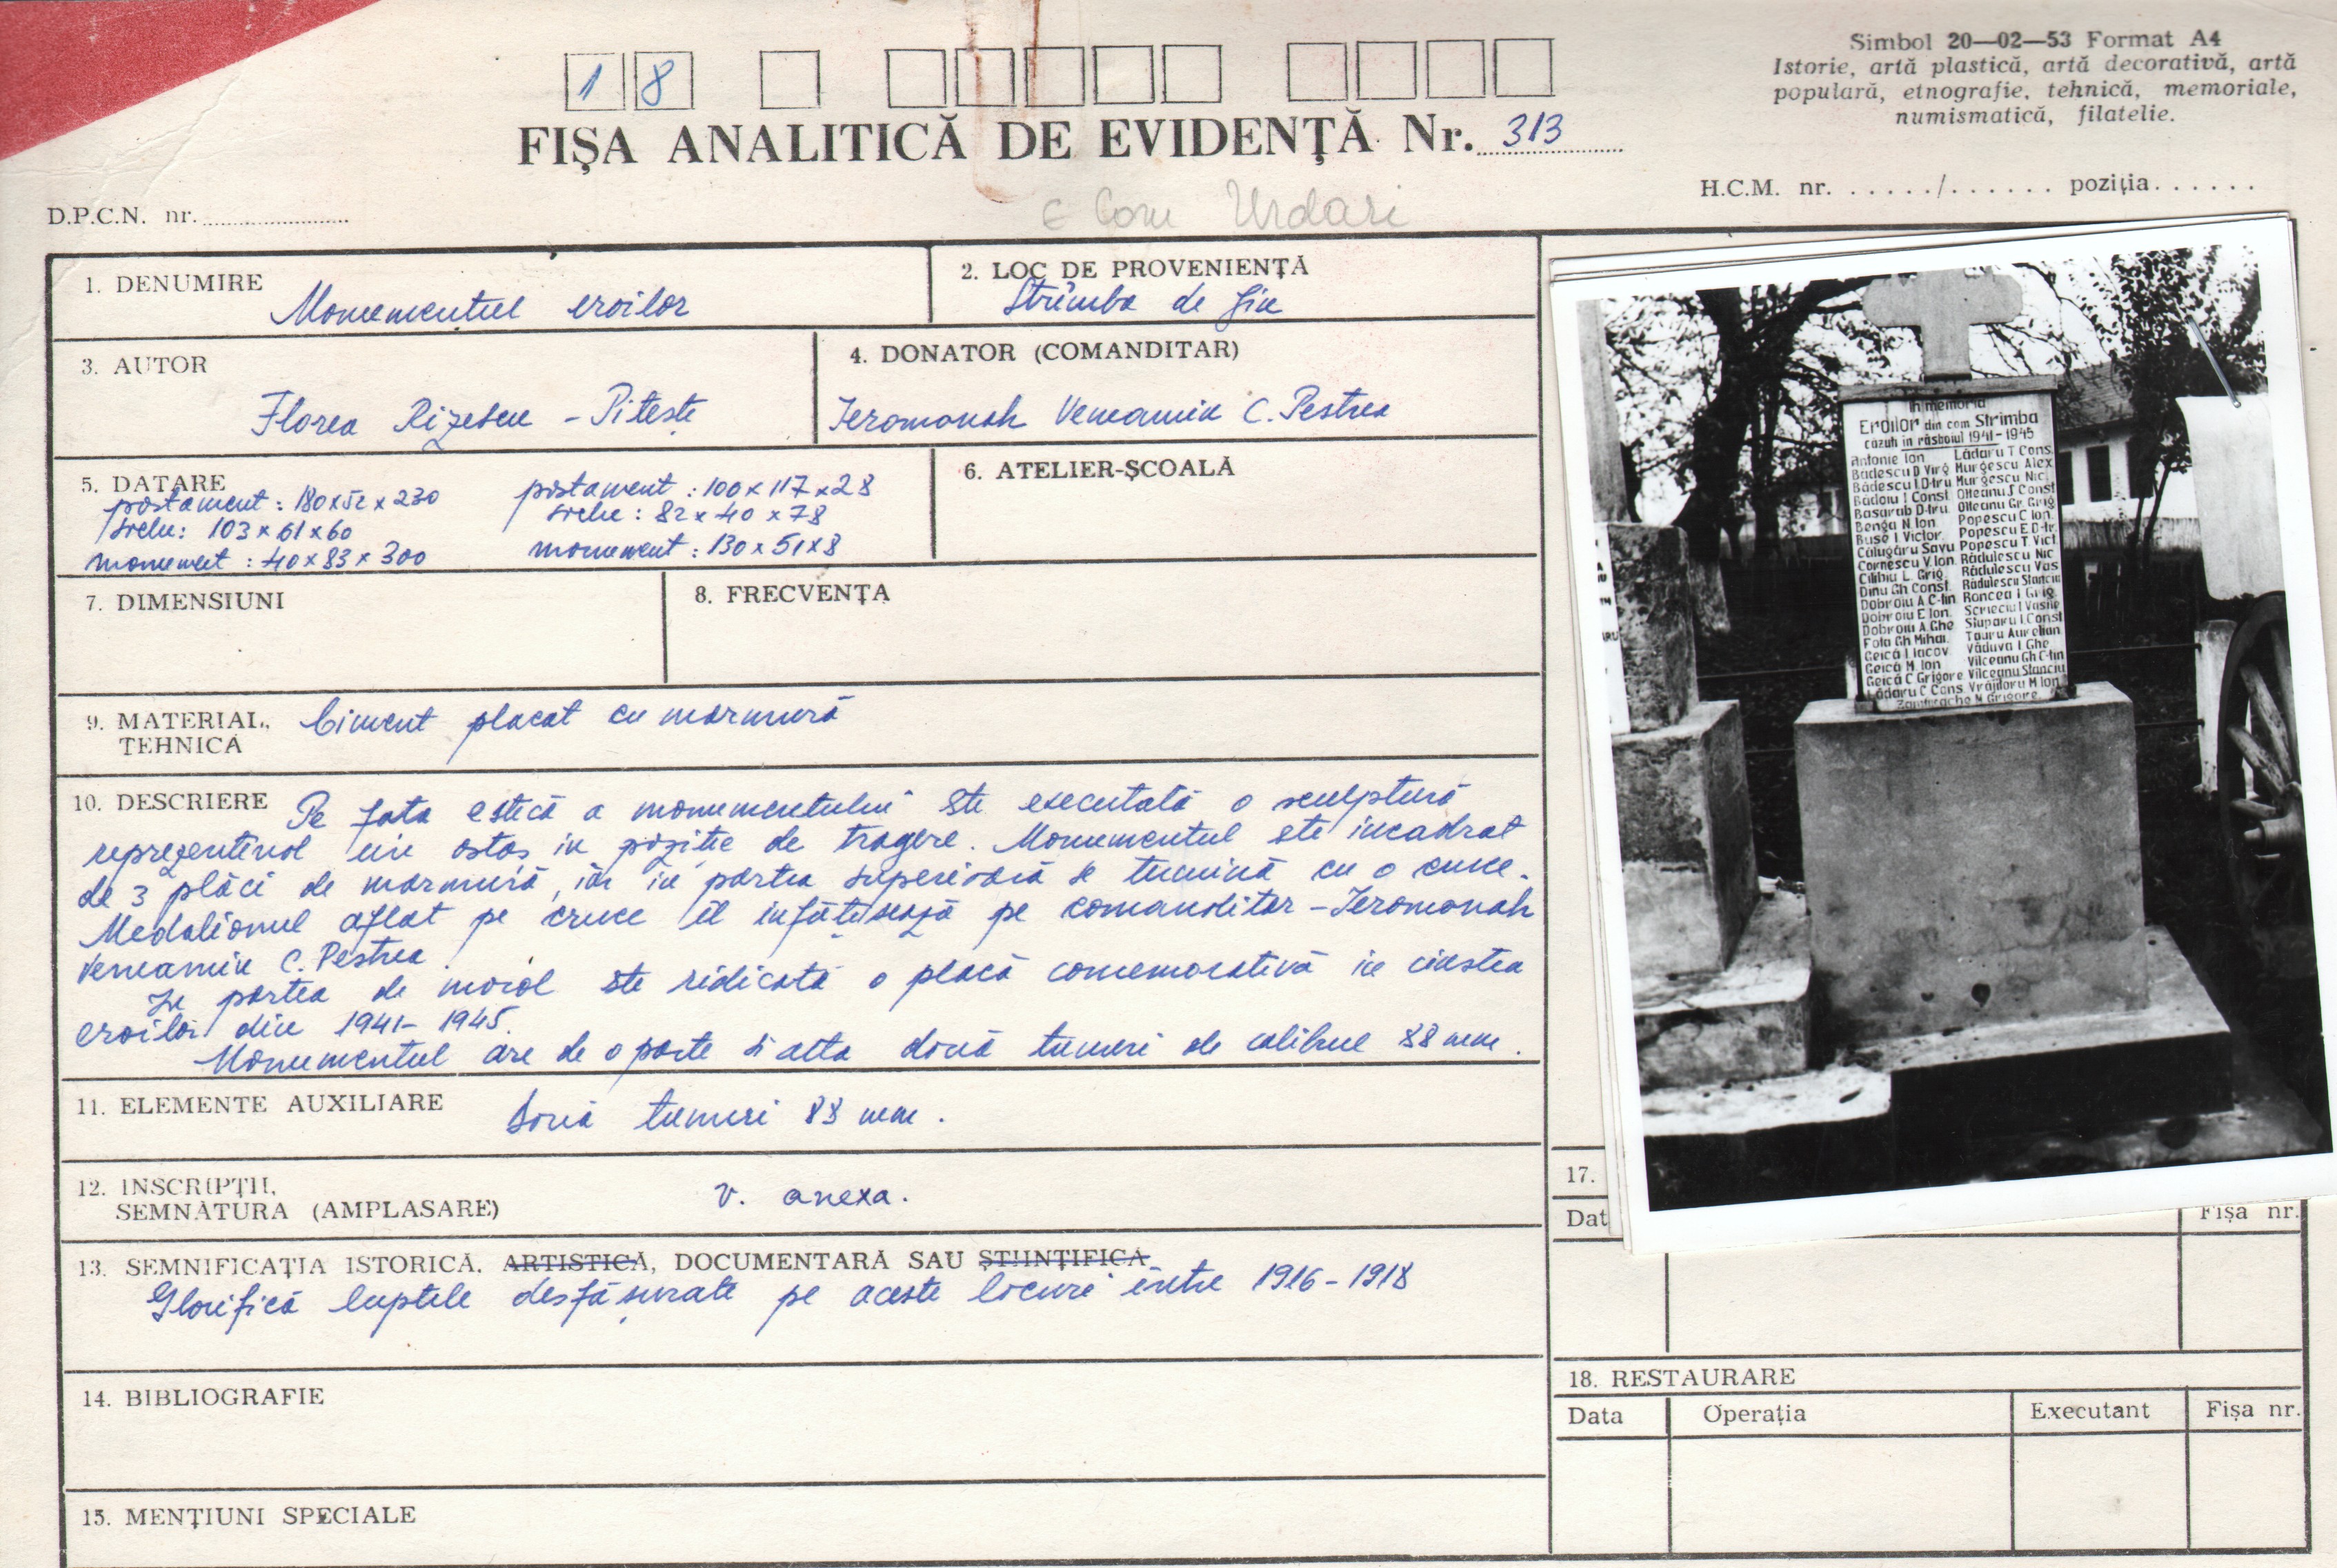 Simbol 20—02—53 Format A4
Istorie, artă plastică, artă decorativă, artă
populară, etnografie, tehnică, memoriale,
numismatică, filatelie.
1 8
FIŞA ANALITICĂ DE EVIDENŢĂ Nr. 313
H.C.M. nr. ...../...... poziţia......
D.P.C.N. nr.
Com Urdari
1. DENUMIRE
Monumentul eroilor
2. LOC DE PROVENIENŢĂ
Strîmba de Jiu
3. AUTOR
Florea Rizescu - Piteşti
4. DONATOR (COMANDITAR)
Ieromonah Veneamin C. Pestrea
5. DATARE
postament : 180x52x230
soclu: 103x61x60
monument : 40x83x300
postament : 100x117x28
soclu : 82x40x78
monument : 130x51x8
6. ATELIER-ŞCOALĂ
7. DIMENSIUNI
8. FRECVENŢA
9. MATERIAL,
TEHNICĂ
Ciment placat cu marmură
10. DESCRIERE
Pe fata estică a monumentului este executată o sculptură
reprezentînd un ostas in pozitie de tragere. Monumentul este incadrat
de 3 plăci de marmură, iar in partea superioară se termină cu o cruce.
Medalionul aflat pe cruce îl infăţisează pe comanditar - Ieromonah
Veneamin C. Pestrea.
In partea de nord este ridicată o placă comemorativă in cinstea
eroilor din 1941-1945.
Monumentul are de o parte si alta două tunuri de calibrul 88 mm.
11. ELEMENTE AUXILIARE
Două tunuri 88 mm.
12. INSCRIPŢII,
SEMNĂTURA (AMPLASARE)
v. anexa.
13. SEMNIFICAŢIA ISTORICĂ, ARTISTICĂ, DOCUMENTARĂ SAU ŞTIINŢIFICĂ
Glorifică luptele desfăşurate pe aceste locuri între 1916-1918
14. BIBLIOGRAFIE
15. MENŢIUNI SPECIALE
In memoria
Eroilor din com. Strimba
căzuti in răsboiul 1941-1945
Antonie Ion Lădaru T Cons.
Bădescu D Virg Murgescu Alex
Bădescu I D-tru Murgescu Nic.
Bădoiu I Const Olteanu J Const
Basarab D-tru Olteanu Gr. Grig
Benga N Ion Popescu C Ion.
Buse I Victor Popescu E D-tr
Călugăru Savu Popescu T Vict
Cornescu V. Ion Rădulescu Nic
Cilibiu L. Grig. Rădulescu Vas
Dinu Gh Const. Rădulescu Stanciu
Dobroiu A C-tin Roncea I Grig.
Dobroiu E Ion. Scrieciu I Vasile
Dobroiu A. Ghe Stuparu I. Const
Fota Gh Mihai Tauru Aurelian
Geică I Iacov Văduva I Ghe
Geică M Ion Vilceanu Gh C-tin
Geică C Grigore Vilceanu Stanciu
Lădaru C Cons Vrăjitoru M Ion
N Grigore
17.
Dat
Fişa nr.
18. RESTAURARE
Data Operaţia Executant Fişa nr.